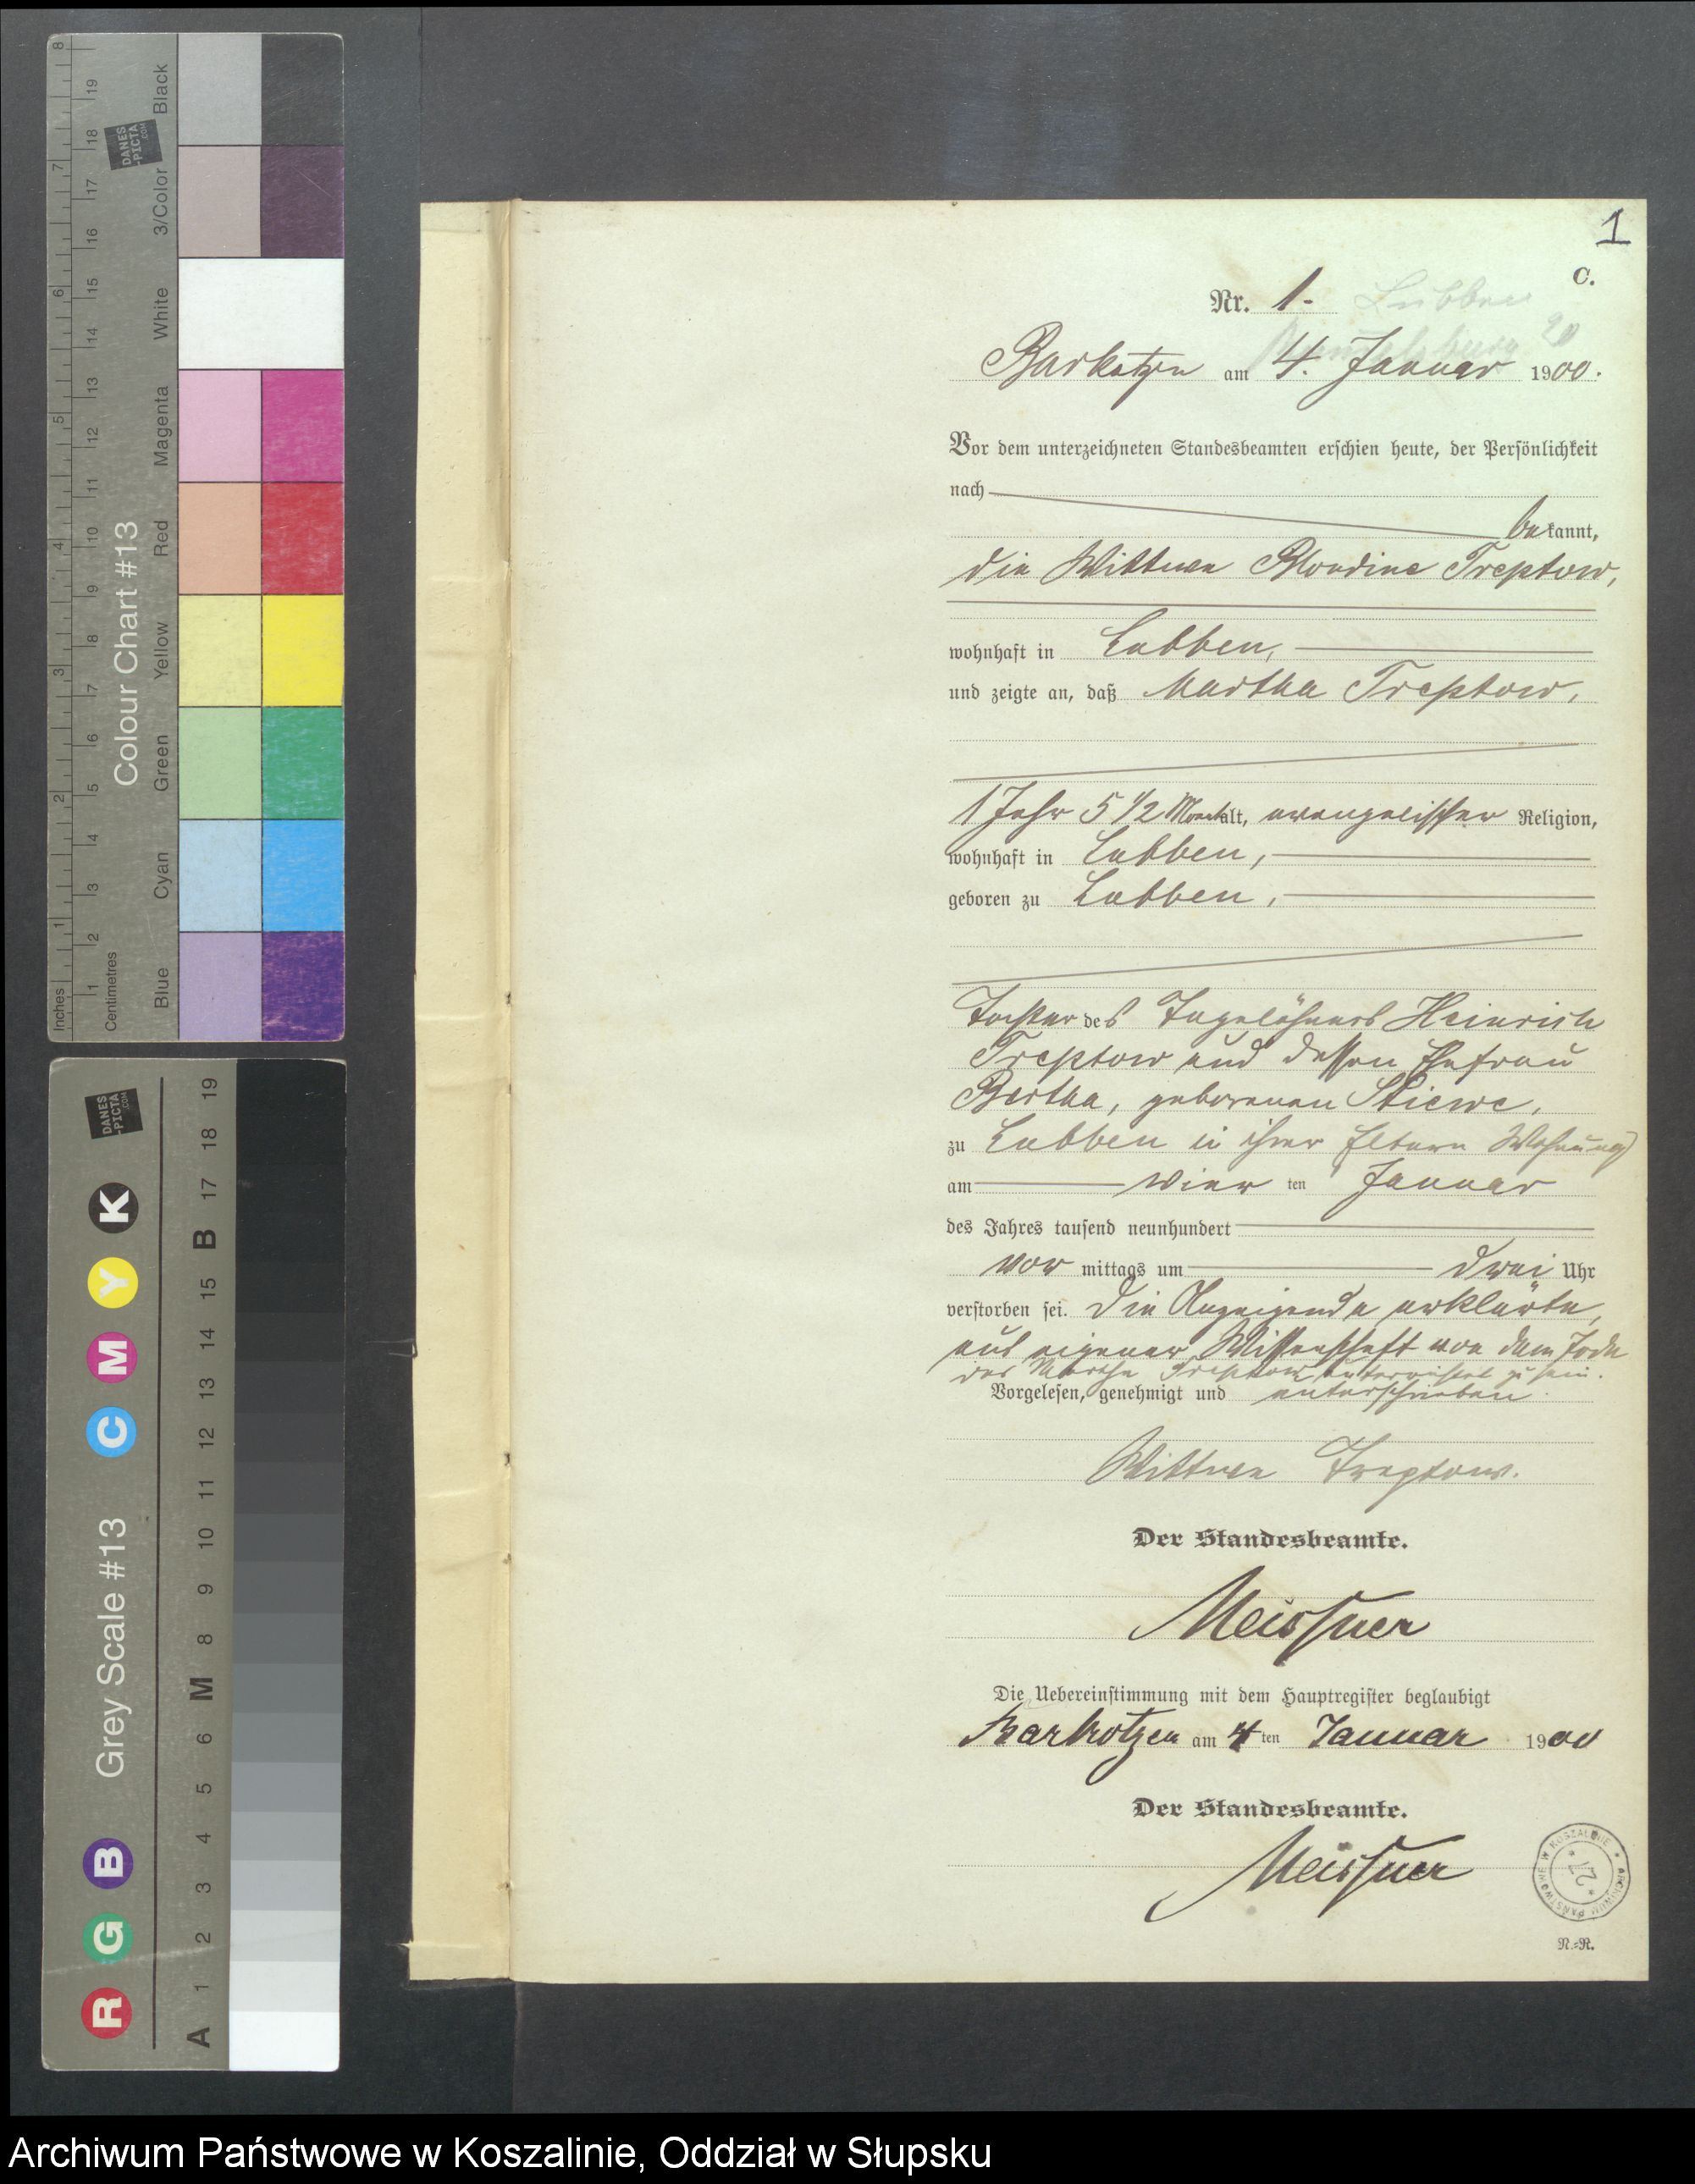 1
C.
Nr. 1.
Lubben
20
Barkotzen am 4. Januar 1900.
Vor dem unterzeichneten Standesbeamten erschien heute, der Persönlichkeit
nach
bekannt,
die Wittwe Blondine Treptow,
wohnhaft in Lubben,
und zeigte an, daß Martha Treptow,
1 Jahr 5 1/2 Monat alt, evangelischer Religion,
wohnhaft in Lubben,
geboren zu Lubben,
Tochter des Tagelöhners Heinrich
Treptow und dessen Ehefrau
Bertha, geborenen Stiewe,
zu Lubben in ihrer Eltern Wohnung
am vier ten Januar
des Jahres tausend neunhundert
vor mittags um drei Uhr
verstorben sei. Die Anzeigende erklärte,
aus eigener Wissenschaft von dem Tode
der Martha Treptow unterrichtet zu sein.
Vorgelesen, genehmigt und unterschrieben.
Wittwe Treptow.
Der Standesbeamte.
Meissner
Die Uebereinstimmung mit dem Hauptregister beglaubigt
Barkotzen am 4 ten Januar 1900
Der Standesbeamte.
Meissner
ARCHIWUM PAŃSTWOWE W KOSZALINIE
* 27 *
N.=R.
Inches 1 2 3 4 5 6 7 8
Centimetres 1 2 3 4 5 6 7 8 9 10 11 12 13 14 15 16 17 18 19
Colour Chart #13
DANES
-PICTA
.COM
Blue Cyan Green Yellow Red Magenta White 3/Color Black
Grey Scale #13
DANES
-PICTA
.COM
R G B C M Y K
A 1 2 3 4 5 6 M 8 9 10 11 12 13 14 15 B 17 18 19
Archiwum Państwowe w Koszalinie, Oddział w Słupsku